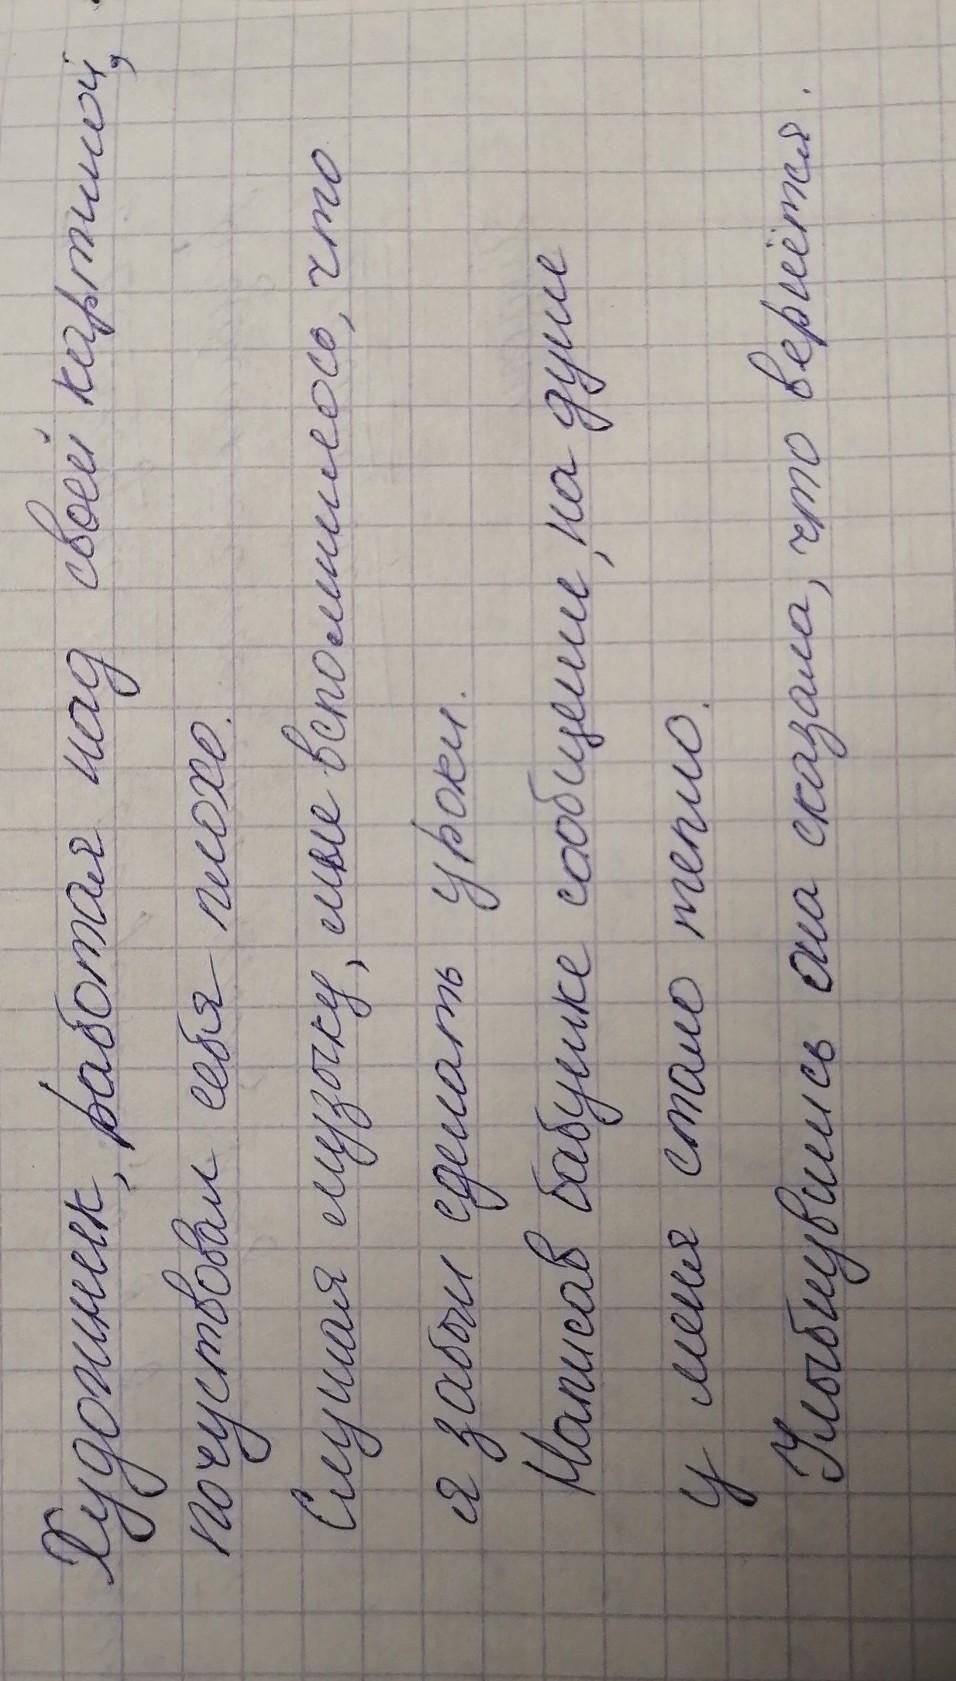 Художник, работая над своей картиной,
почуствовал себя плохо.
Слушая музыку, мне вспомнилось, что
я забыл сделать уроки.
Написав бабушке сообщение, на душе
у меня стало тепло.
Улыбнувшись она сказала, что вернётся.